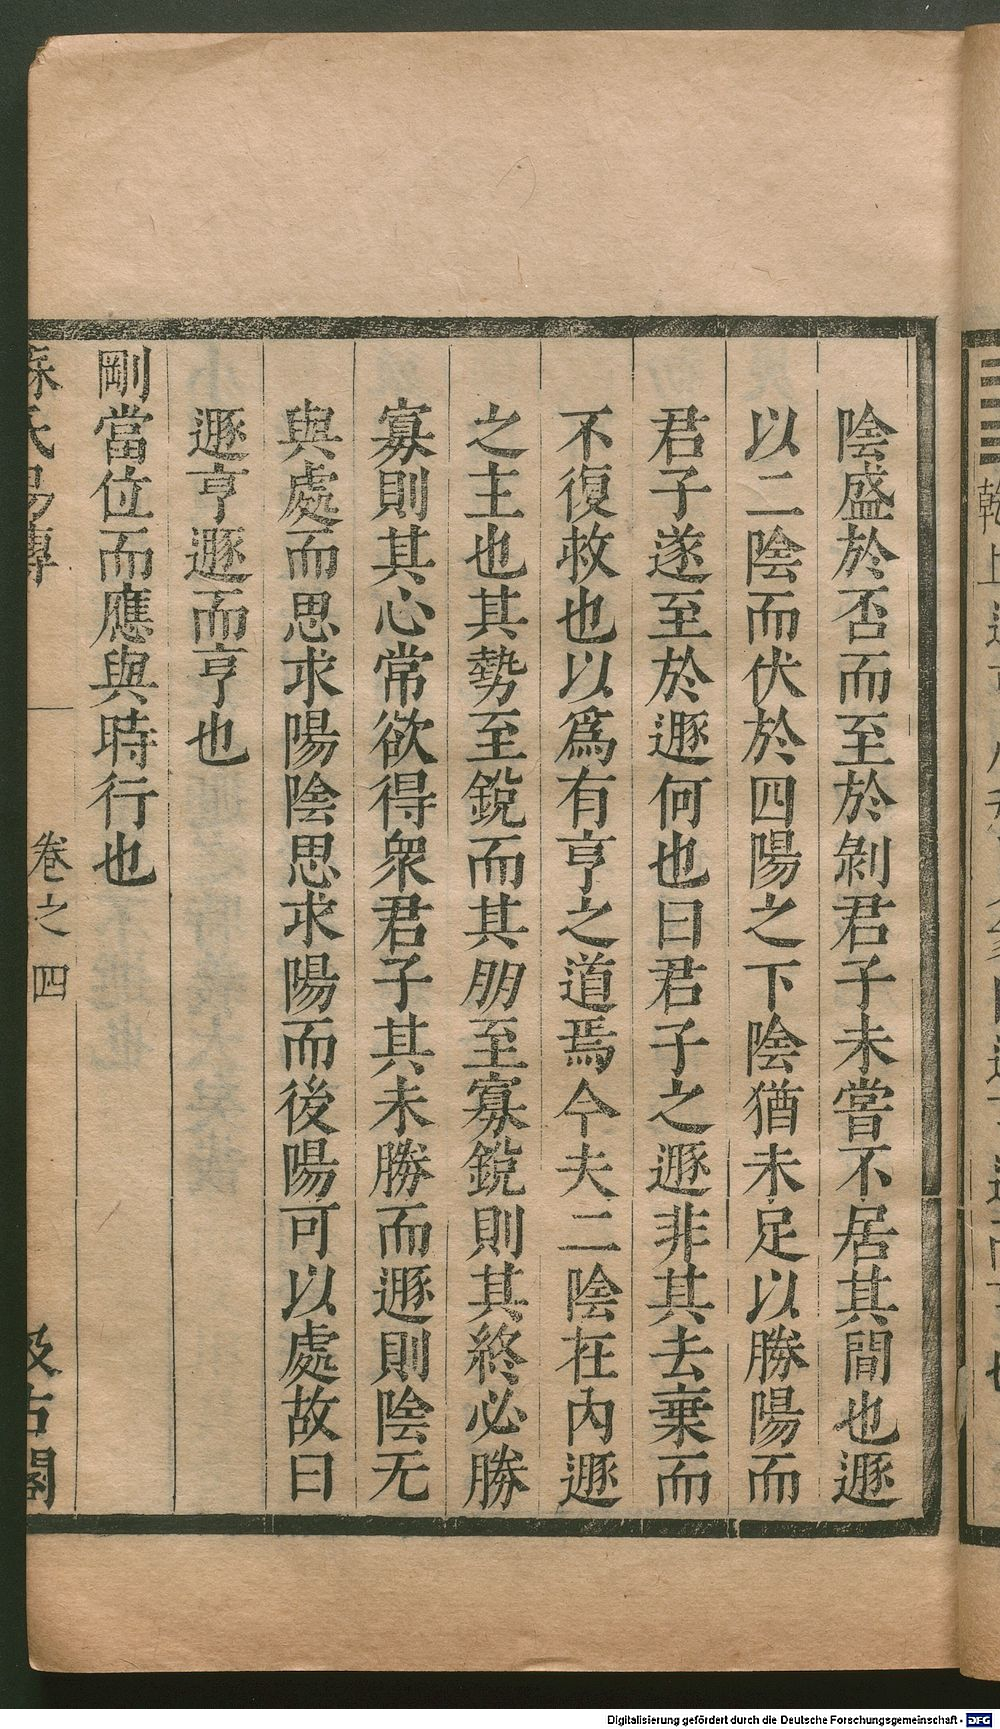 陰盛於否而至於剝君子未嘗不居其間也遯
以二陰而伏於四陽之下陰猶未足以勝陽而
君子遂至於遯何也曰君子之遯非其去棄而
不復救也以爲有亨之道焉今夫二陰在內遯
之主也其勢至銳而其朋至寡銳則其終必勝
寡則其心常欲得衆君子其未勝而遯則陰无
與處而思求陽陰思求陽而後陽可以處故曰
遯亨遯而亨也
剛當位而應與時行也
蘇氏易傳 卷之四 汲古閣
Digitalisierung gefördert durch die Deutsche Forschungsgemeinschaft - DFG